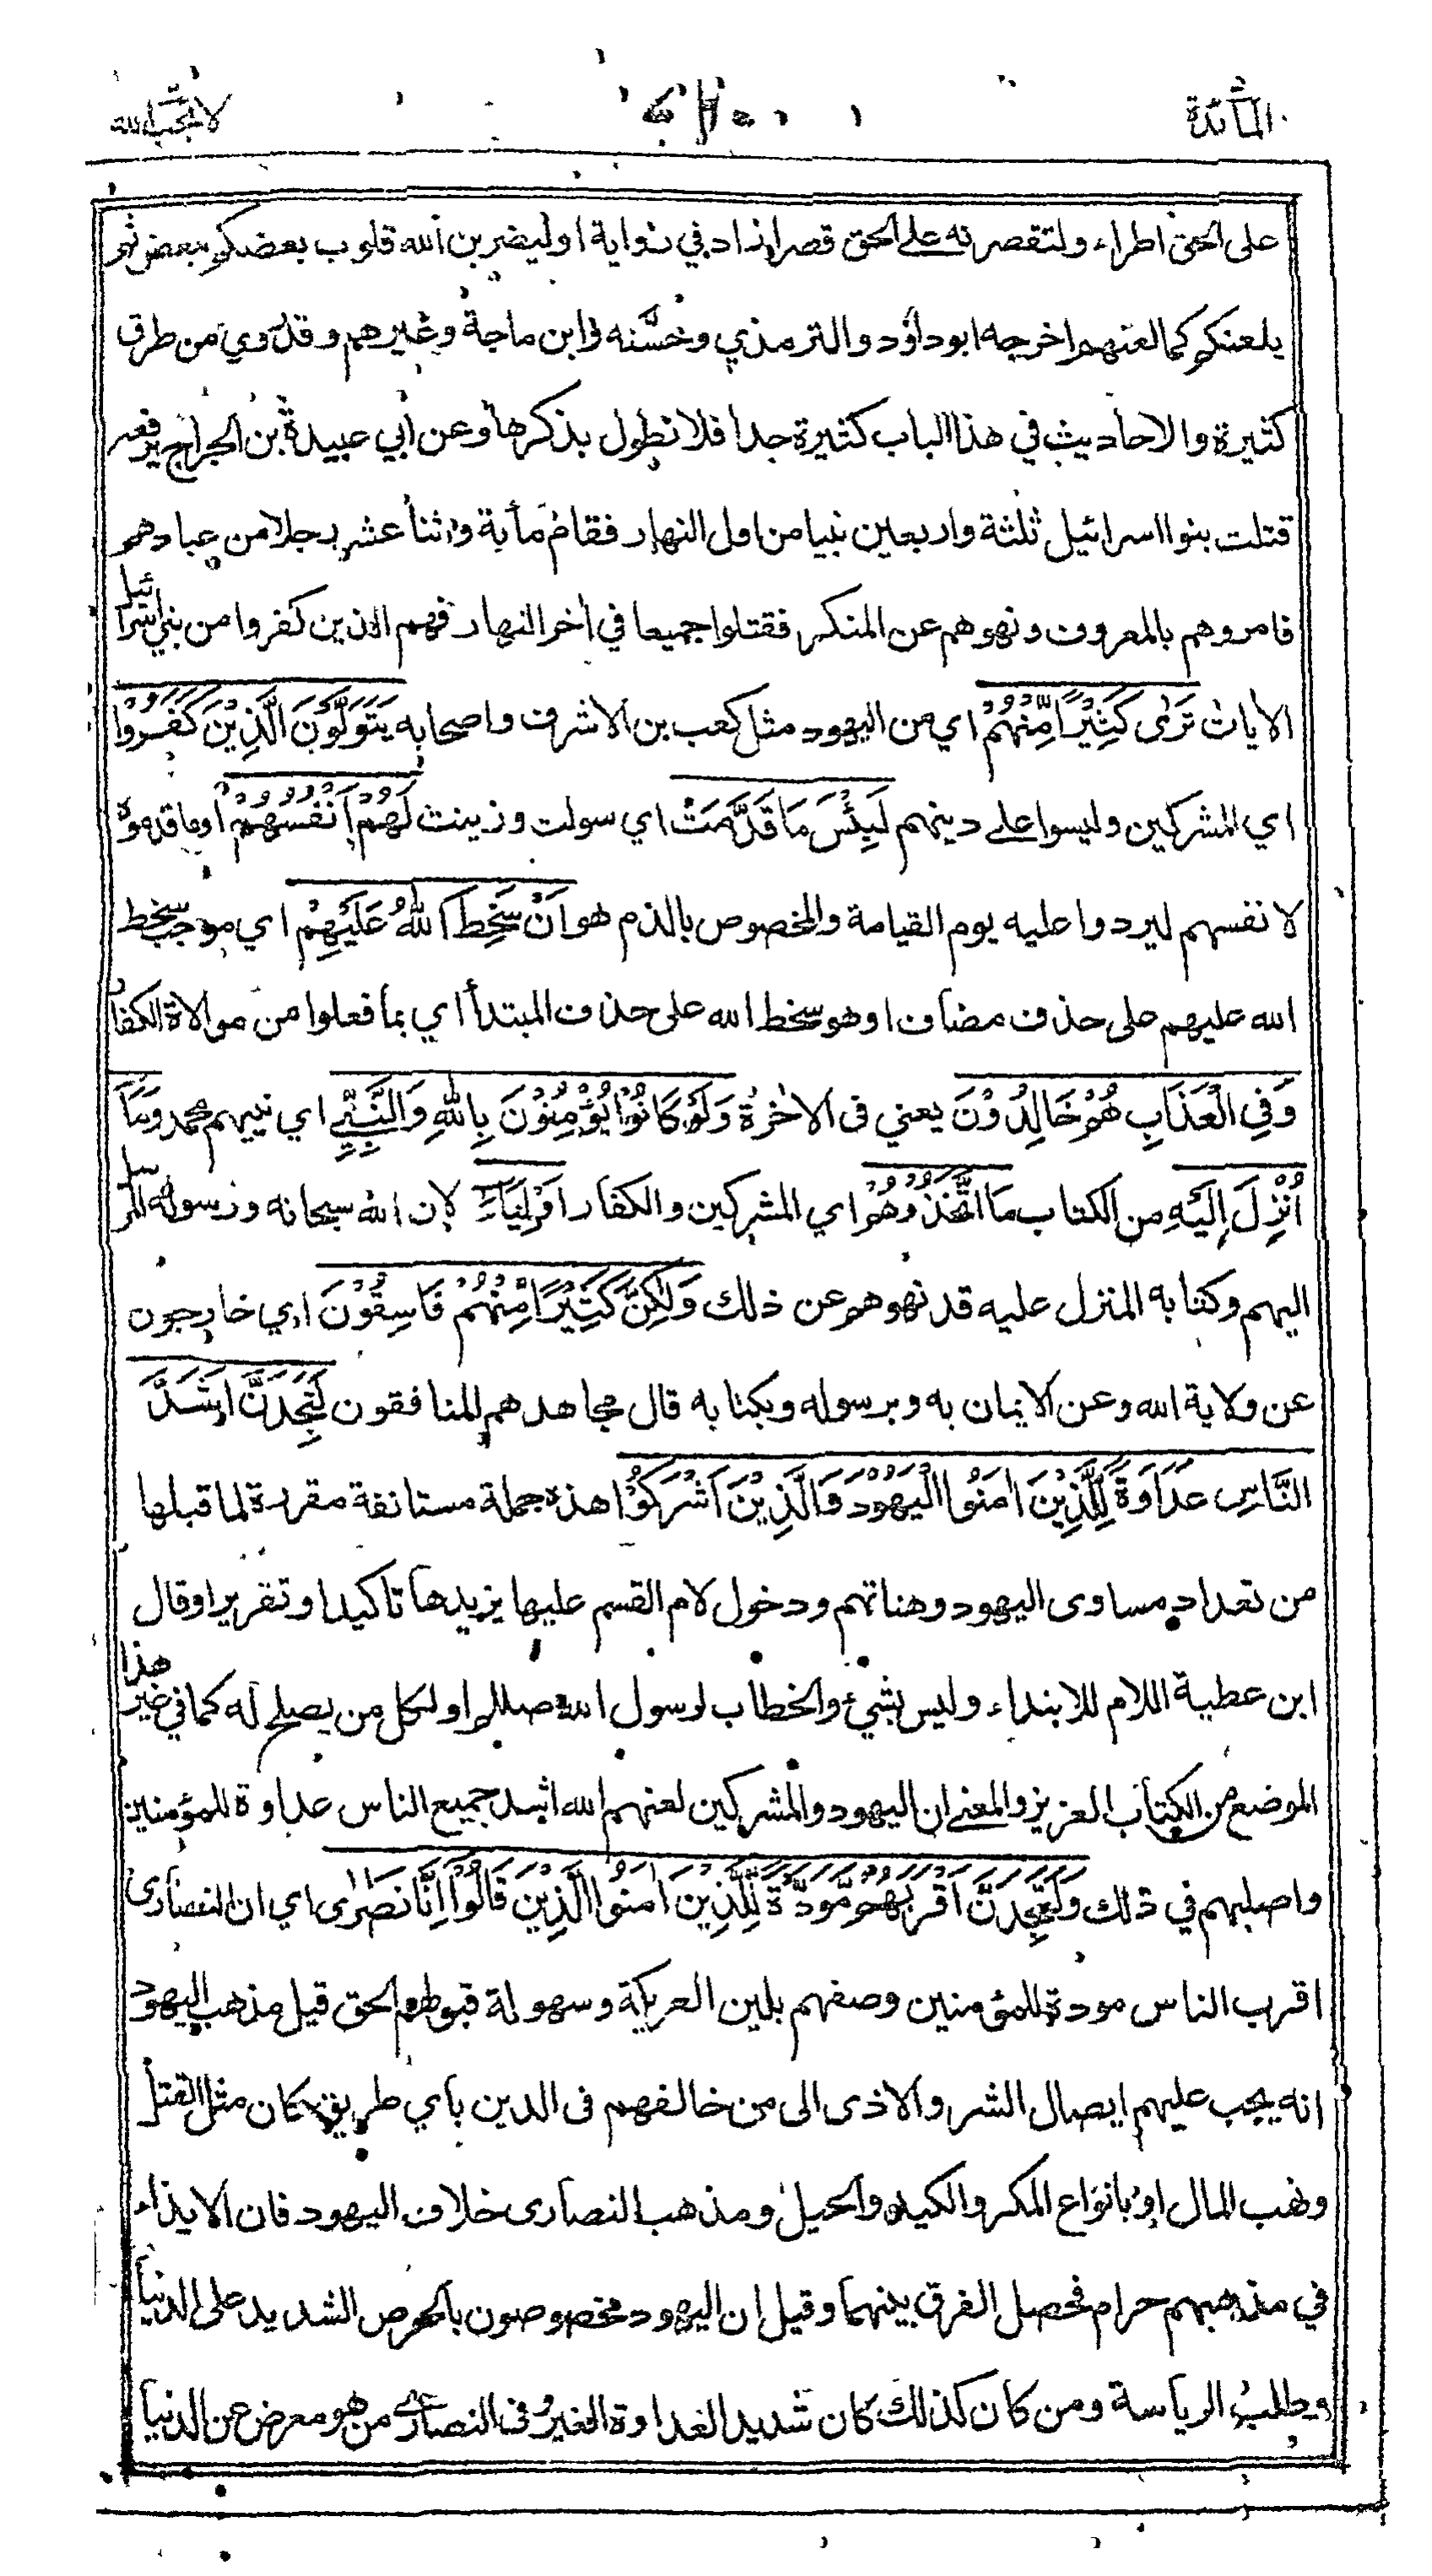 المائدة
لا يحب الله
على الحق اطراء ولتقصرنه على الحق قصرا زاد في رواية او ليضربن الله قلوب بعضكم ببعض ثم
يلعنكم كما لعنهم اخرجه ابو داؤد والترمذي وحسّنه وابن ماجة وغيرهم وقد روي من طرق
كثيرة والاحاديث في هذا الباب كثيرة جدا فلا نطول بذكرها وعن ابي عبيدة بن الجراح يرفعه
قتلت بنوا اسرائيل ثلثة واربعين نبيا من اول النهار فقام مأية واثنا عشر رجلا من عبادهم
فامروهم بالمعروف ونهوهم عن المنكر فقتلوا جميعا في أخر النهار فهم الذين كفروا من بني اسرائيل
الايات تَرٰى كَثِيْرًا مِّنْهُمْ اي من اليهود مثل كعب بن الاشرف واصحابه يَتَوَلَّوْنَ الَّذِيْنَ كَفَرُوْا
اي المشركين وليسوا على دينهم لَبِئْسَ مَا قَدَّمَتْ اي سولت وزينت لَهُمْ اَنْفُسُهُمْ او ما قدموه
لانفسهم ليردوا عليه يوم القيامة والمخصوص بالذم هو اَنْ سَخِطَ اللّٰهُ عَلَيْهِمْ اي موجب سخط
الله عليهم على حذف مضاف او هو سخط الله على حذف المبتدأ اي بما فعلوا من موالاة الكفار
وَفِي الْعَذَابِ هُمْ خَالِدُوْنَ يعني فى الاٰخرة وَلَوْ كَانُوْا يُؤْمِنُوْنَ بِاللّٰهِ وَالنَّبِيِّ اي نبيهم محمد وَمَا
اُنْزِلَ اِلَيْهِ من الكتاب مَا اتَّخَذُوْهُمْ اي المشركين والكفار اَوْلِيَاءَ لان الله سبحانه ورسوله المرسل
اليهم وكتابه المنزل عليه قد نهوهم عن ذلك وَلٰكِنَّ كَثِيْرًا مِّنْهُمْ فَاسِقُوْنَ اي خارجون
عن ولاية الله وعن الايمان به وبرسوله وبكتابه قال مجاهد هم المنافقون لَتَجِدَنَّ اَشَدَّ
النَّاسِ عَدَاوَةً لِّلَّذِيْنَ اٰمَنُوا الْيَهُوْدَ وَالَّذِيْنَ اَشْرَكُوْا هذه جملة مستانفة مقررة لما قبلها
من تعداد مساوى اليهود وهناتهم ودخول لام القسم عليها يزيدها تاكيدا وتقريرا وقال
ابن عطية اللام للابتداء وليس بشيء والخطاب لرسول الله صللم او لكل من يصلح له كما في غير هذا
الموضع من الكتاب العزيز والمعنى ان اليهود والمشركين لعنهم الله اشد جميع الناس عداوة للمؤمنين
واصلبهم في ذلك وَلَتَجِدَنَّ اَقْرَبَهُمْ مَّوَدَّةً لِّلَّذِيْنَ اٰمَنُوا الَّذِيْنَ قَالُوْٓا اِنَّا نَصٰرٰى اي ان النصارى
اقرب الناس مودة للمؤمنين وصفهم بلين العريكة وسهولة قبولهم الحق قيل مذهب اليهود
انه يجب عليهم ايصال الشر والاذى الى من خالفهم فى الدين باي طريق كان مثل القتل
ونهب المال او بانواع المكر والكيد والحيل ومذهب النصارى خلاف اليهود فان الايذاء
في مذهبهم حرام فحصل الفرق بينهما وقيل ان اليهود مخصوصون بالحرص الشديد على الدنيا
وطلب الرياسة ومن كان كذلك كان شديد العداوة للغير وفى النصارى من هو معرض عن الدنيا